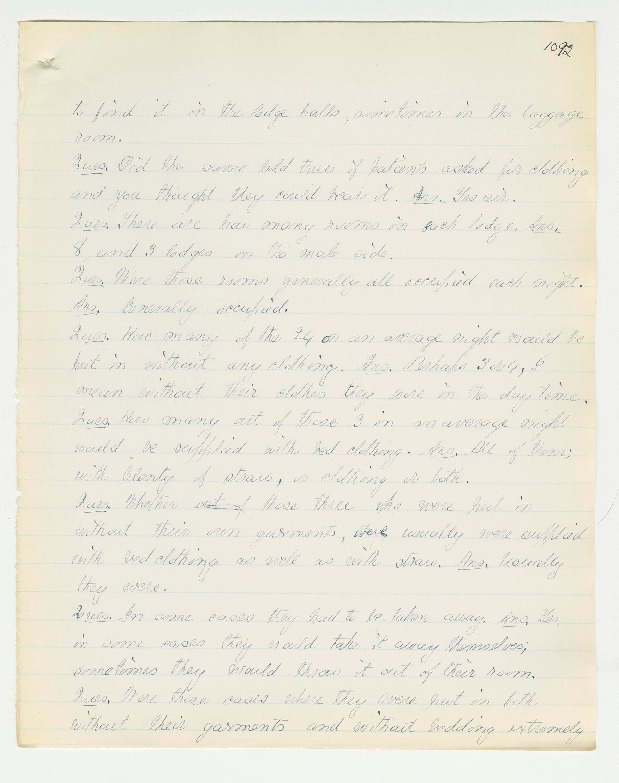 1092
to find it in the lodge halls, sometimes in the baggage
room.
Ques. Did the same hold true if patients asked for clothing
and you thought they could bear it. Ans. Yes sir.
Ques. There are how many rooms in each lodge. Ans.
8, and 3 lodges on the male side.
Ques. Were those rooms generally all occupied each night.
Ans. Generally occupied.
Ques. How many of the 24 on an average night would be
put in without any clothing. Ans. Perhaps 3 or 4, I
mean without their clothes they wore in the day time.
Ques. How many out of those 3 in an average night
would be supplied with bed clothing. Ans. All of them;
with plenty of straw, or clothing or both.
Ques. Whether out of those three who were put in
without their own garments, were usually were supplied
with bed clothing as well as with straw. Ans. Usually
they were.
Ques. In some cases they had to be taken away. Ans. Yes,
in some cases they would take it away themselves;
sometimes they would throw it out of their room.
Ques. Were those cases where they were put in both
without their garments and without bedding extremely